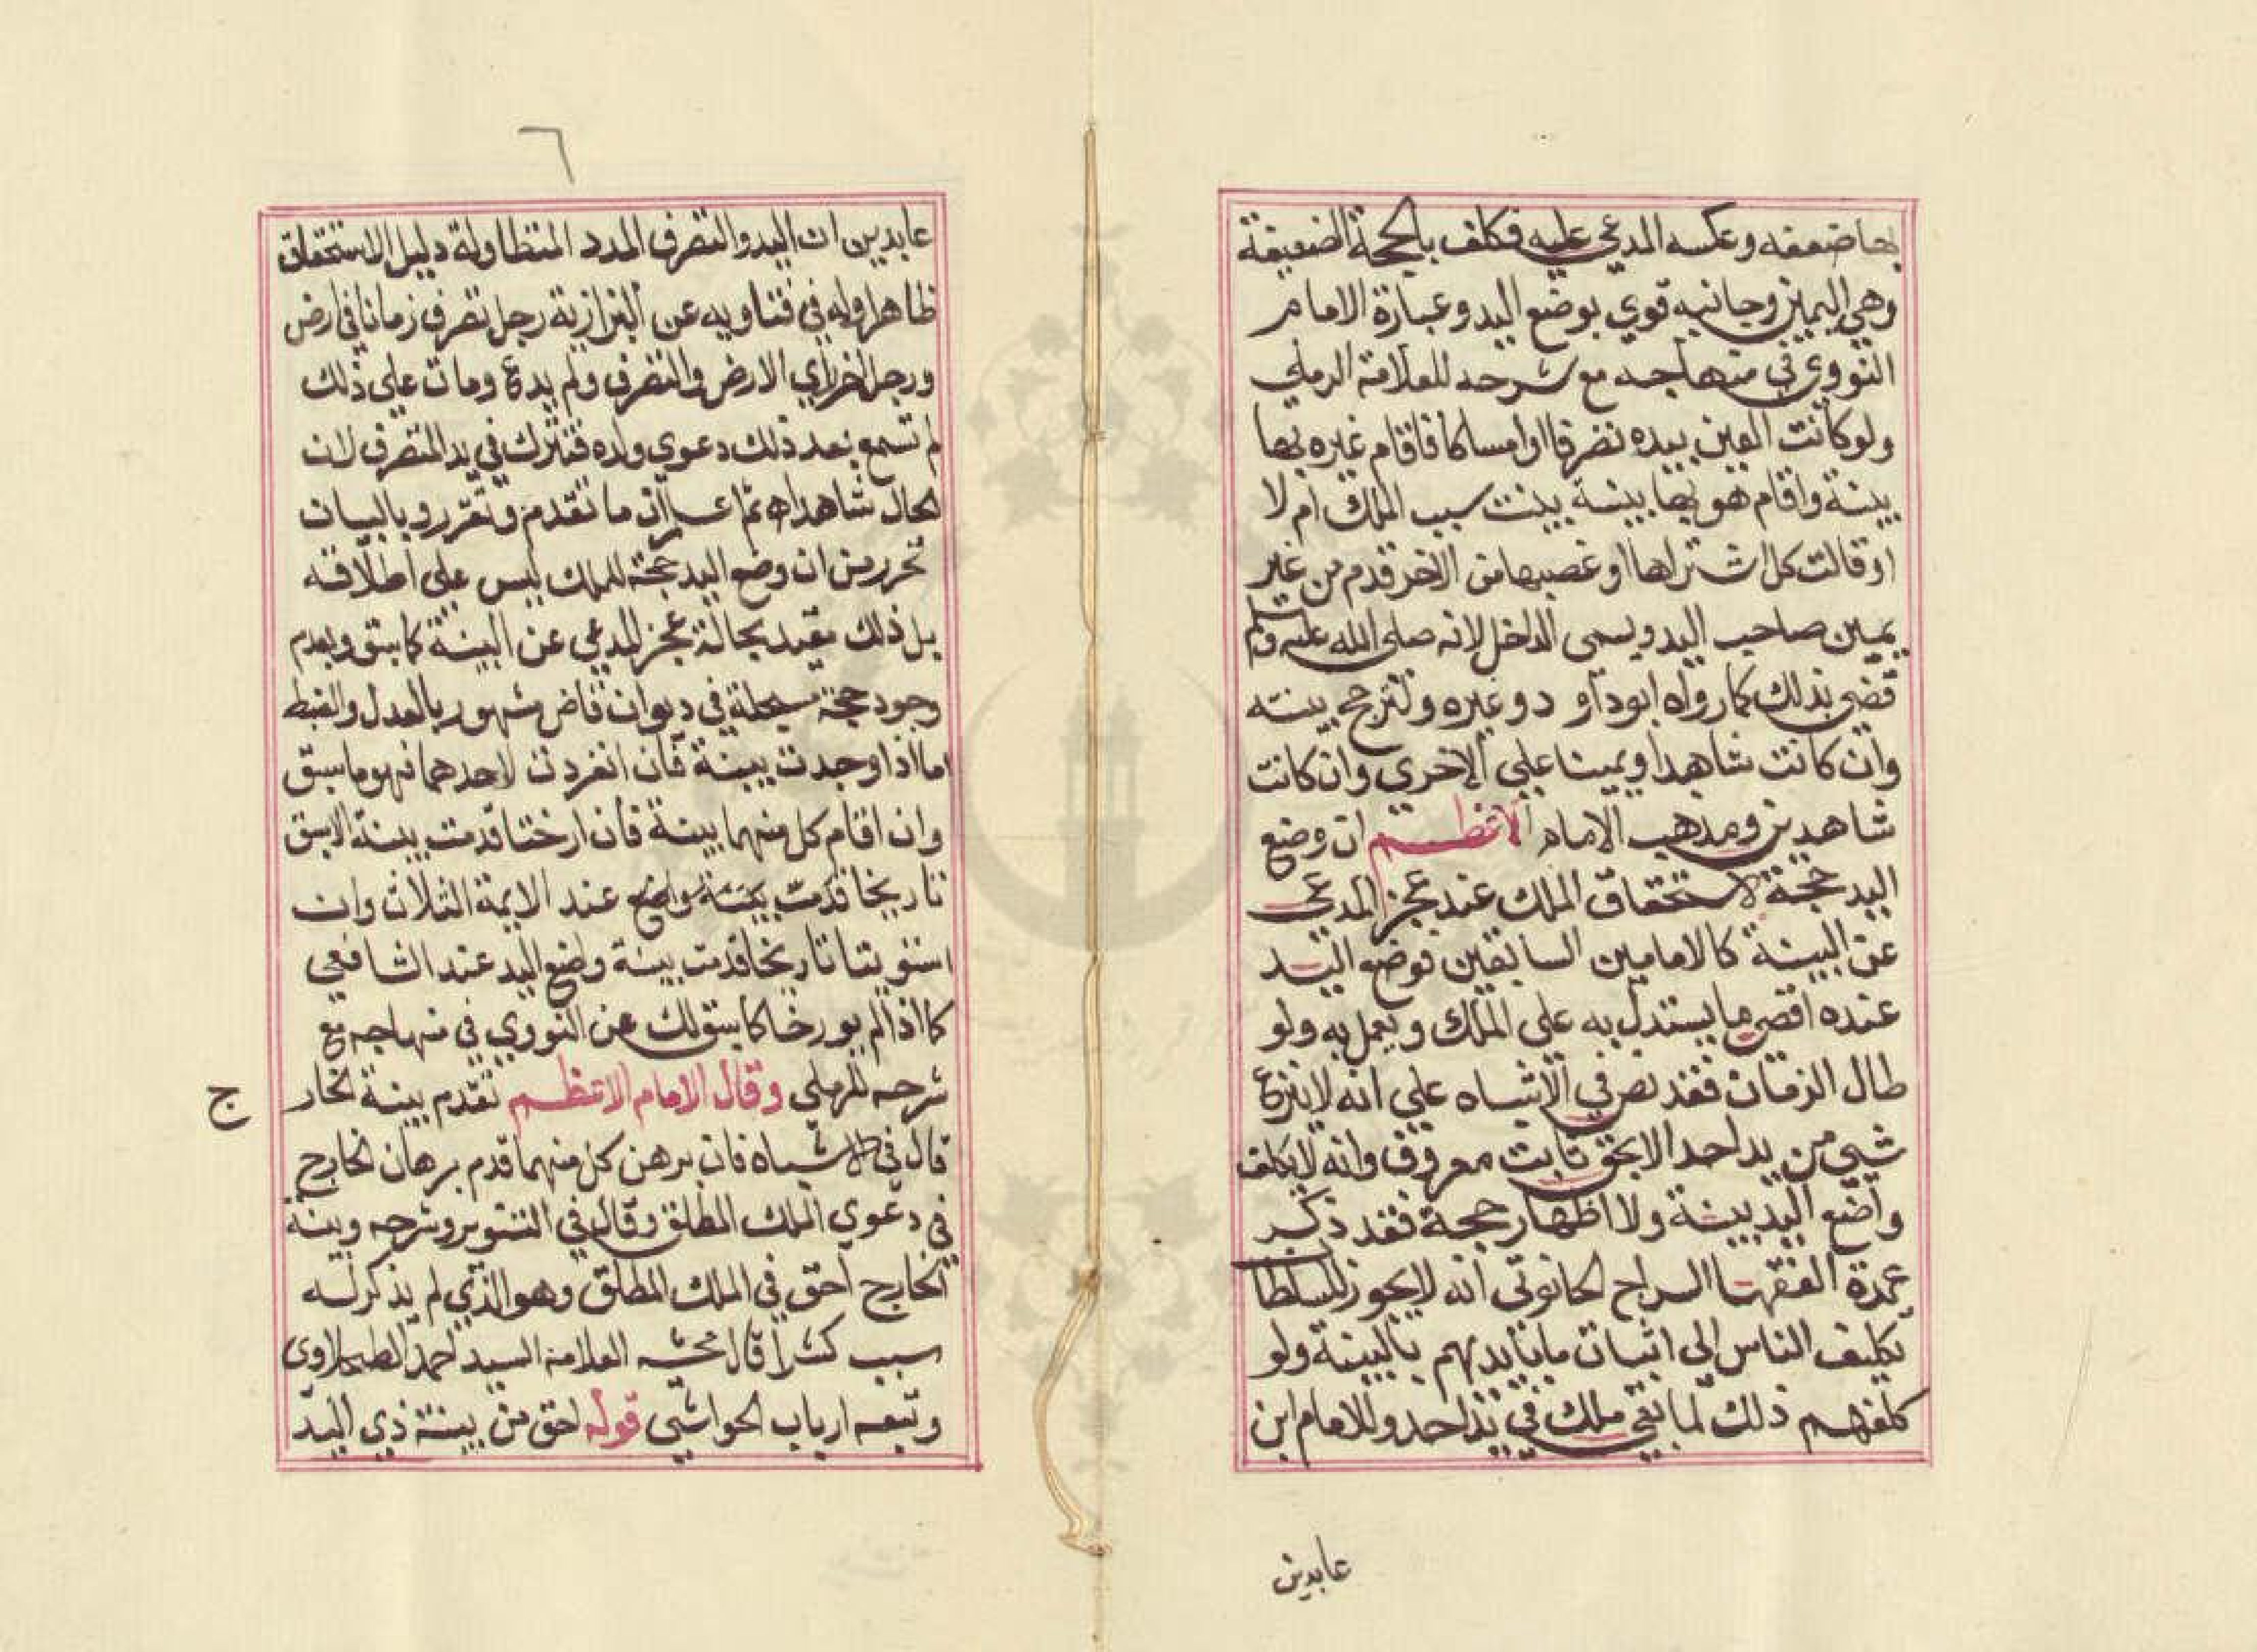 بها ضعفه وعكسه المدعي عليه فكلف بالحجة الضعيفة
وهي اليمين وجانبه قوي بوضع اليد وعبارة الامام
النووي في منهاجه مع شرحه للعلامة الرملي
ولو كانت العين بيده تصرفا او امساكا فاقام غيره بها
بينة واقام هو بها بينة بينت سبب الملك ام لا
او قالت كل اشتراها او غصبها من الاخر قدم من غير
يمين صاحب اليد ويسمى الداخل لانه صلى الله عليه وسلم
قضي بذلك كما رواه ابو داو د وغيره ولترجح بينته
وان كانت شاهدا ويمينا علي الاخرى وان كانت
شاهدين ومذهب الامام الاعظم ان وضع
اليد حجة لاستحقاق الملك عند عجز المدعي
عن البينة كالامامين السابقين فوضع اليد
عنده اقصي ما يستدل به على الملك ويعمل به ولو
طال الزمان فقد نص في الاشباه علي انه لا ينزع
شيئ من يد احد الا بحق ثابت معروف وانه لا يكلف
واضع اليد بينة ولا اظهار حجة فقد ذكر
عمدة الفقها السراج الحانوتي انه لا يجوز للسلطان
تكليف الناس الى اثبات ما بايديهم بالبينة ولو
كلفهم ذلك لما بقي ملك في يد احد وللامام ابن
عابدين
٦
عابدين ان اليد والتصرف المدد المتطاولة دليل الاستحقاق
ظاهرا وله في فتاويه عن البزازية رجل تصرف زمانا في ارض
ورجل اخر راي الارض والتصرف ولم يدع ومات علي ذلك
لم تسمع بعد ذلك دعوي ولده فتترك في يد المتصرف لان
الحال شاهد اه ثم اعلم ان ما تقدم وتقرر وبالبيان
تحرر من ان وضع اليد حجة للملك ليس علي اطلاقه
بل ذلك مقيد بحالة عجز المدعي عن البينة كما سبق وبعدم
وجود حجة مسجلة في ديوان قاض مشهور بالعدل والضبط
اما اذا وجدت بينة فان انفردت لاحدهما فهو ما سبق
وان اقام كل منهما بينة فان ارختا قدمت بينة الاسبق
تاريخا قدمت بينة واضع عند الايمة الثلاث وان
استويتا تاريخا قدمت بينة واضع اليد عند الشافعي
كما اذا لم يورخا كما سبق لك عن النووي في منهاجه مع
شرحه للرملي وقال الامام الاعظم تقدم بينة الخار
ج
قال في الاشباه فان برهن كل منهما قدم برهان الخارج
في دعوي الملك المطلق وقال في التنوير وشرحه وبينة
الخارج احق في الملك المطلق وهو الذي لم يذكر له
سبب كشرا قال محشيه العلامة السيد احمد الطحلاوى
وتبعه ارباب الحواشي قوله احق من بينة ذي اليد